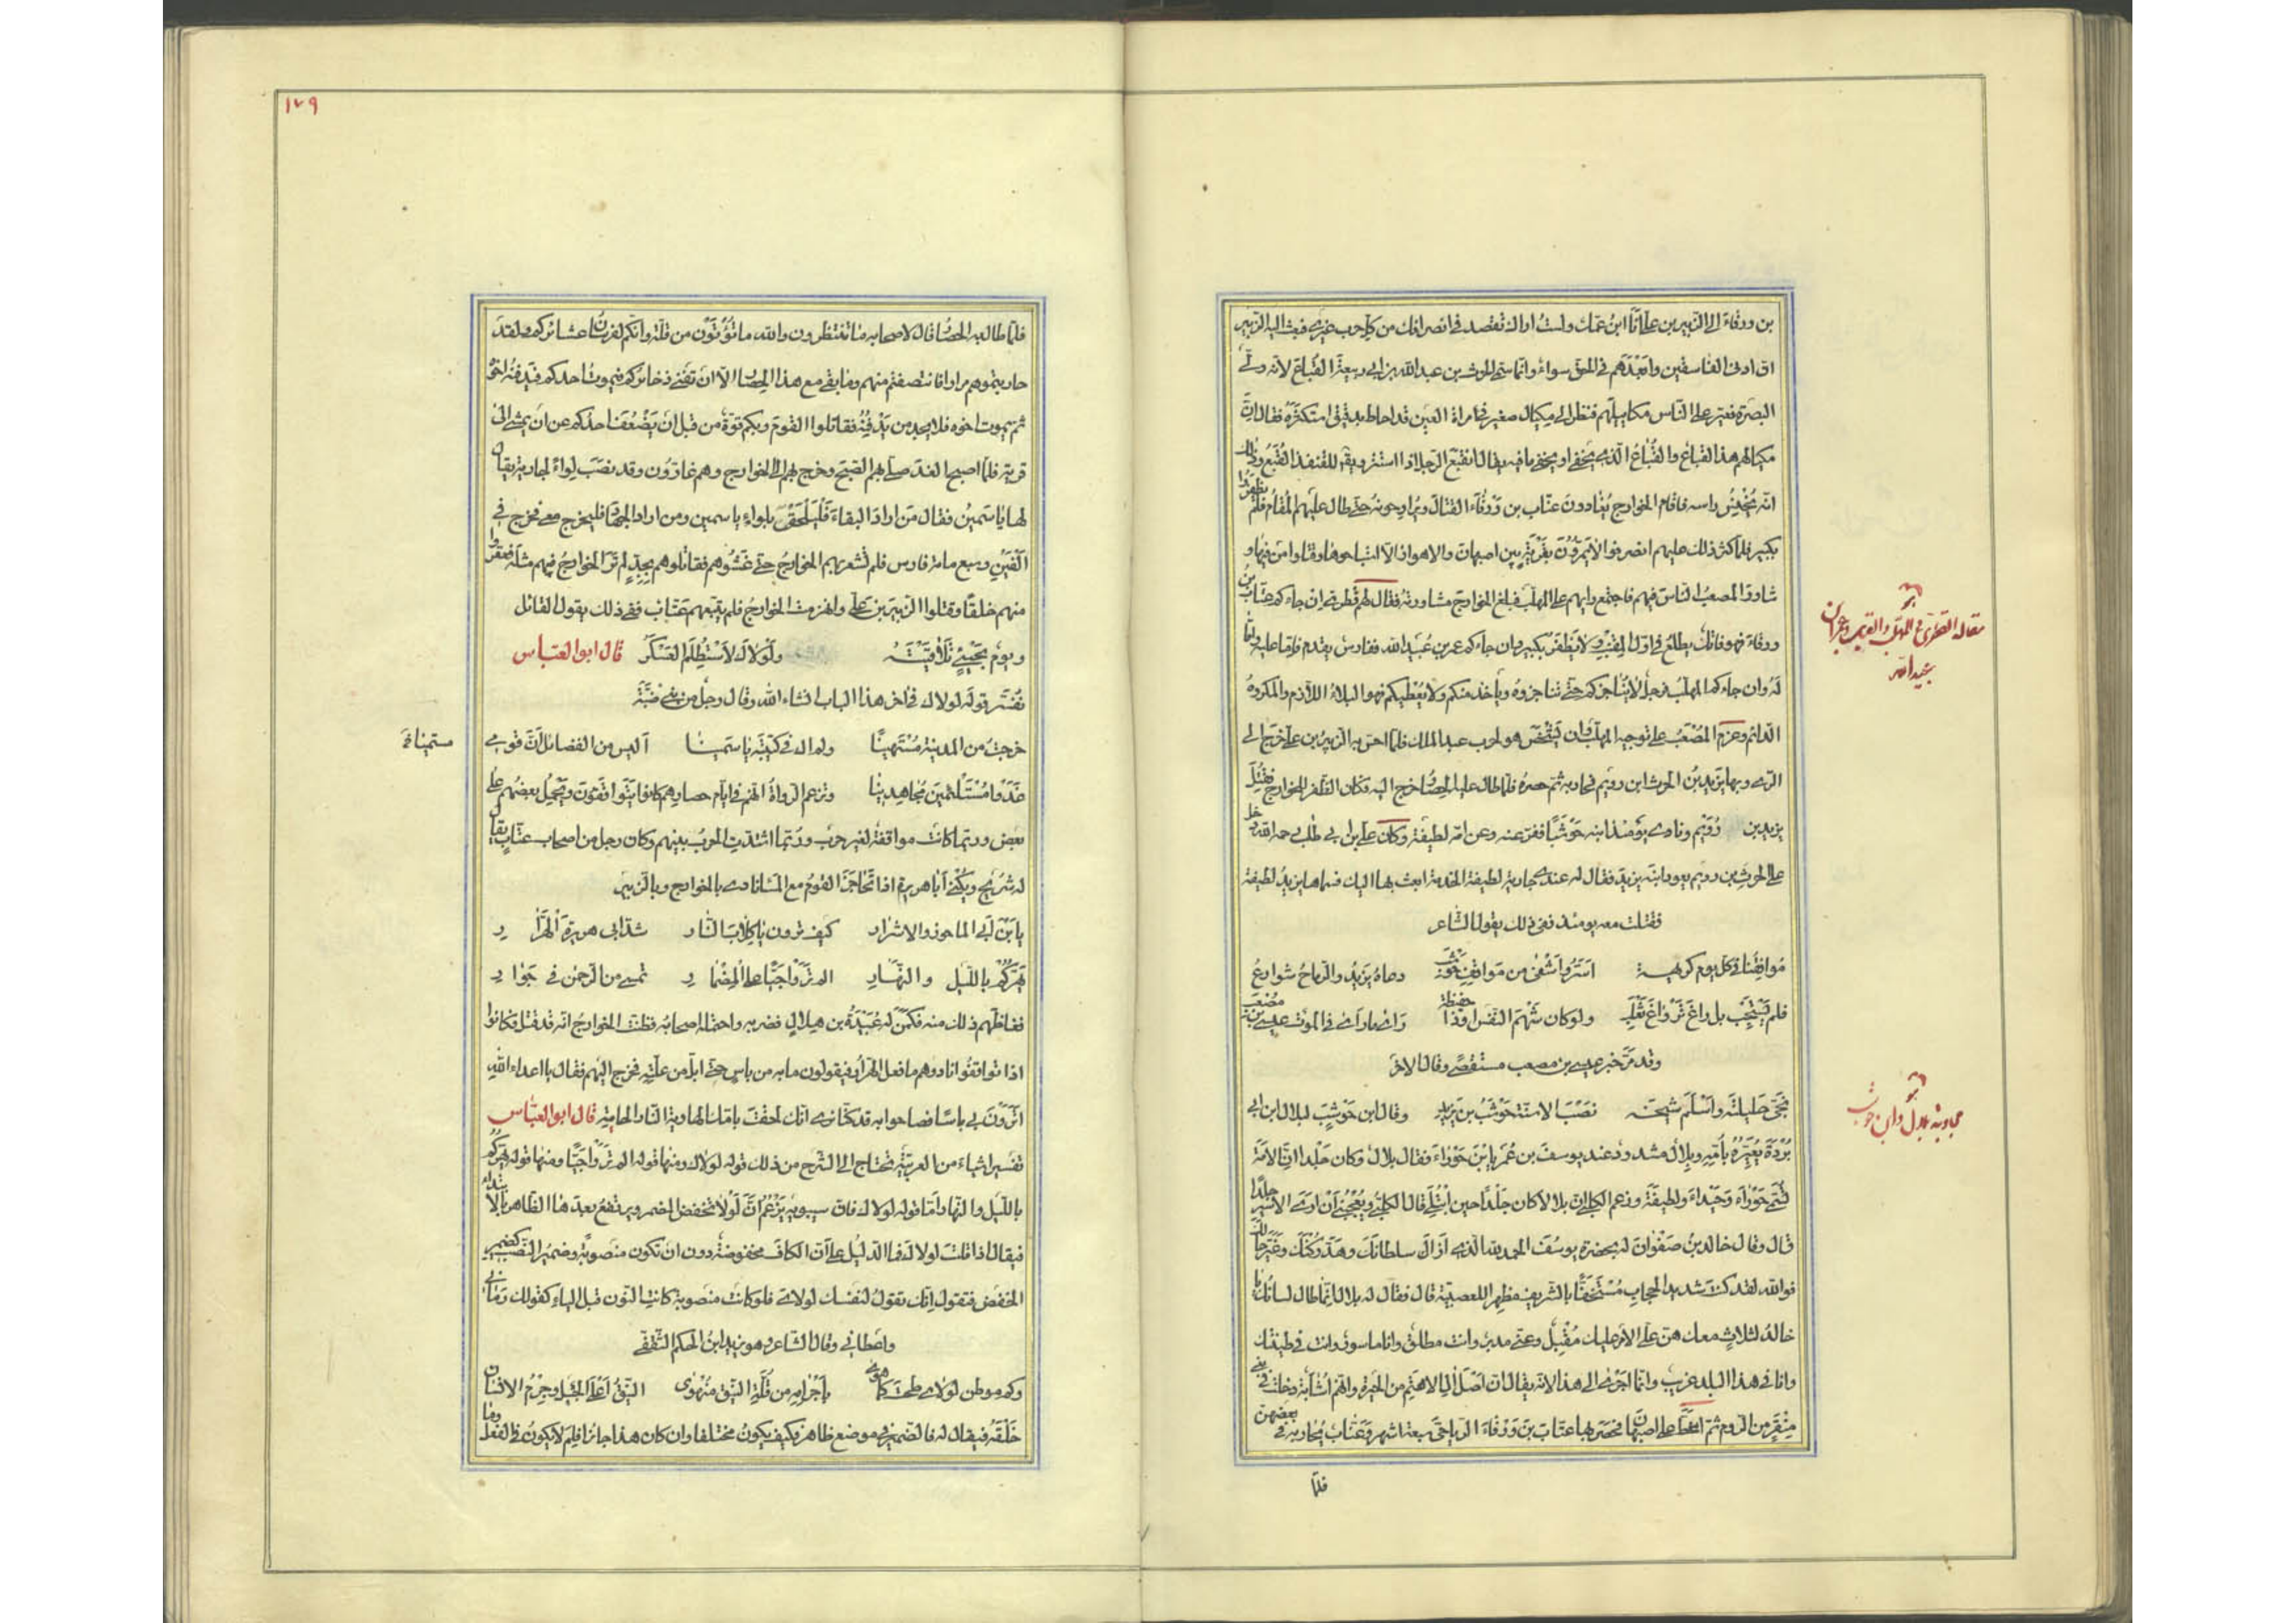 بن ورقاء الى الزبير بن علىّ انا ابن عمك ولست اراك تقصد فى انصرافك من كل حرب غيرى فبعث اليه الزبير
ان ادنى الفاسقين وابعدهم فى الحق سواء وانما سمى الحرث بن عبد الله بن ابى ربيعة القباع لانه ولى
البصرة فعير على الناس مكاييلهم فنظر الى مكيال صغير فى مرآة العين قد احاط بدقيق استكثره فقال ان
مكيالكم هذا القباع والقباع الذى يخفى او يخفى ما فيه يقال انقبع الرجل اذا استتر ويقال للقنفذ القبع وذلك
انه يخنس راسه فاقام الخوارج يغادون عتاب بن ورقاء القتال ويراوحونه حتى طال عليهم المقام فلم يظفروا
بكبير فلما كثر ذلك عليهم انصرفوا لا يمرون بقرية بين اصبهان والاهواز الا استباحوها وقتلوا من فيها و
شاور المصعب الناس فيهم فاجتمع رايهم على المهلب فبلغ الخوارج مشاورته فقال لهم قطرى ان جاءكم عتاب بن
ورقاء فهو فاتك يطلع فى اول المقنب ولا يظفر بكبير وان جاءكم عمر بن عبيد الله ففارس يقدم فاما عليه واما
له وان جاءكم المهلب فرجل لا يناجزكم حتى تناجزوه ويأخذ منكم ولا يعطيكم فهو البلاء اللازم والمكروه
الدائم وعزم المصعب على توجيه المهلب وان يشخص هو لحرب عبد الملك فلما احس به الزبير بن على خرج الى
الرى وبها يزيد بن الحرث ابن رويم فحاربه ثم حصره فلما طال عليه الحصار خرج اليه فكان الظفر للخوارج فقتل
يزيد بن رويم ونادى يومئذ ابنه حوشبا ففر عنه وعن امه لطيفة وكان على بن ابى طالب رحمه الله دخل
على الحرث بن رويم يعود ابنه يزيد فقال له عندى جارية لطيفة الخدمة ابعث بها اليك فسماها يزيد لطيفة
فقتلت معه يومئذ ففى ذلك يقول الشاعر
مواقفنا فى كل يوم كريهة اسر واشفى من مواقف حوشب دعاه يزيد والرماح شوارع
فلم يستجب بل راغ ترواغ ثعلب ولو كان شهم النفس او ذا حفيظة راى ما راى فى الموت عيسى بن مصعب
وقد مر خبر عيسى بن مصعب مستقصى وقال الاخر
نجى حليلته واسلم شيخه نصب الاسنة حوشب بن يزيد وقال ابن حوشب لبلال ابن ابى
بردة يعيره بامه وبلال مشدود عند يوسف بن عمر يا ابن حوراء فقال بلال وكان جلدا ان الامة
تسمى حوراء وجيداء ولطيفة وزعم الكلبى ان بلالا كان جلدا حين ابتلى قال الكلبى ويعجبنى ان ارى الاسير جلدا
قال وقال خالد بن صفوان له بحضرة يوسف الحمد لله الذى ازال سلطانك وهد ركنك وغير حالك
فوالله لقد كنت شديد الحجاب مستخفا بالشريف مظهرا للعصبية قال فقال له بلال انما طال لسانك يا
خالد لثلاث معك هن على الامر عليك مقبل وعنى مدبر وانت مطلق وانا ماسور وانت فى طينتك
وانا فى هذا البلد غريب وانما اجرى الى هذا لانه يقال ان اصل ال الاهتم من الحيرة وانهم اشابة دخلت فى بنى
منقر من الروم ثم انحط على اصبهان فحصر بها عتاب بن ورقاء الرياحى سبعة اشهر وعتاب يحاربه فى بعضهن
فلما
مقاله القطرى فى المهلب
عبيد الله
١٧٩
فلما طال به الحصار قال لاصحابه ما تنتظرون والله ما تؤتون من قلة وانكم لفرسان عشائركم ولقد
حاربتموهم مرارا فانتصفتم منهم وما بقى مع هذا الحصار الا ان تفنى ذخائركم فيموت احدكم فيدفنه اخوه
ثم يموت اخوه فلا يجد من يدفنه فقاتلوا القوم وبكم قوة من قبل ان يضعف احدكم عن ان يمشى الى
قرنه فلما اصبح الغد صلى بهم الصبح وخرج بهم الى الخوارج وهم غارون وقد نصب لواء لجارية يقال
لها ياسمين فقال من اراد البقاء فليلحق بلواء ياسمين ومن اراد الجهاد فليخرج معى فخرج فى
الفين وسبع مائة فارس فلم تشعر بهم الخوارج حتى غشوهم فقاتلوهم بجد لم تر الخوارج منهم مثله فعقروا
منهم خلقا وقتلوا الزبير بن على وانهزمت الخوارج فلم يتبعهم عتاب ففى ذلك يقول القائل
ويوم بجى تلافيته ولولاك لاستظلم العسكر قال ابو العباس
نفسر قوله لولاك فى اخر هذا الباب انشاء الله وقال رجل من بنى ضبة
خرجت من المدينة مستميتا ولم اك فى كتيبة ياسمينا اليس من الفضائل ان قومى
غدوا مستلئمين مجاهدينا وتزعم الرواة انهم فى ايام حصارهم كانوا يتواقفون ويحمل بعضهم على
بعض وربما كانت مواقفة لغير حرب وربما اشتدت الحرب بينهم وكان رجل من اصحاب عتاب يقال
له شريح ويكنى ابا هريرة اذا تحاجز القوم مع المساء نادى بالخوارج وبالزبير
يا بن ابى الماحوز والاشرار كيف ترون يا كلاب النار شد ابى هريرة الهرار
يهركم بالليل والنهار الم تروا جيا على المضمار تمسى من الرحمن فى جوار
فغاظهم ذلك منه فكمن له عبيدة بن هلال فضربه واحتمله اصحابه فظنت الخوارج انه قد قتل فكانوا
اذا تواقفوا نادوهم ما فعل الهرار فيقولون ما به من باس حتى ابل من علته فخرج اليهم فقال يا اعداء الله
اترون بى باسا فصاحوا به قد كنا نرى انك لحقت بامك الهاوية النار الحامية قال ابو العباس
تفسير اشياء من العربية تحتاج الى الشرح من ذلك قوله لولاك ومنها قوله الم تروا جيا ومنها قوله يهركم
بالليل والنهار اما قوله لولاك فان سيبويه يزعم ان لولا تخفض المضمر ويرتفع بعدها الظاهر بالابتداء
فيقال اذا قلت لولاك فما الدليل على ان الكاف مخفوضة دون ان تكون منصوبة وضمير النصب كضمير
الخفض فتقول انك تقول لنفسك لولاى فلو كانت منصوبة كانت النون قبل الياء كقولك رمانى
واعطانى وقال الشاعر وهو يزيد ابن الحكم الثقفى
وكم موطن لولاى طحت كما هوى باجرامه من قلة النيق منهوى النيق اعلى الجبل وجرم الانسان
خلقه فيقال له فالضمير فى موضع ظاهر فكيف يكون مختلفا وان كان هذا جائزا فلم لا يكون فى الفعل وما